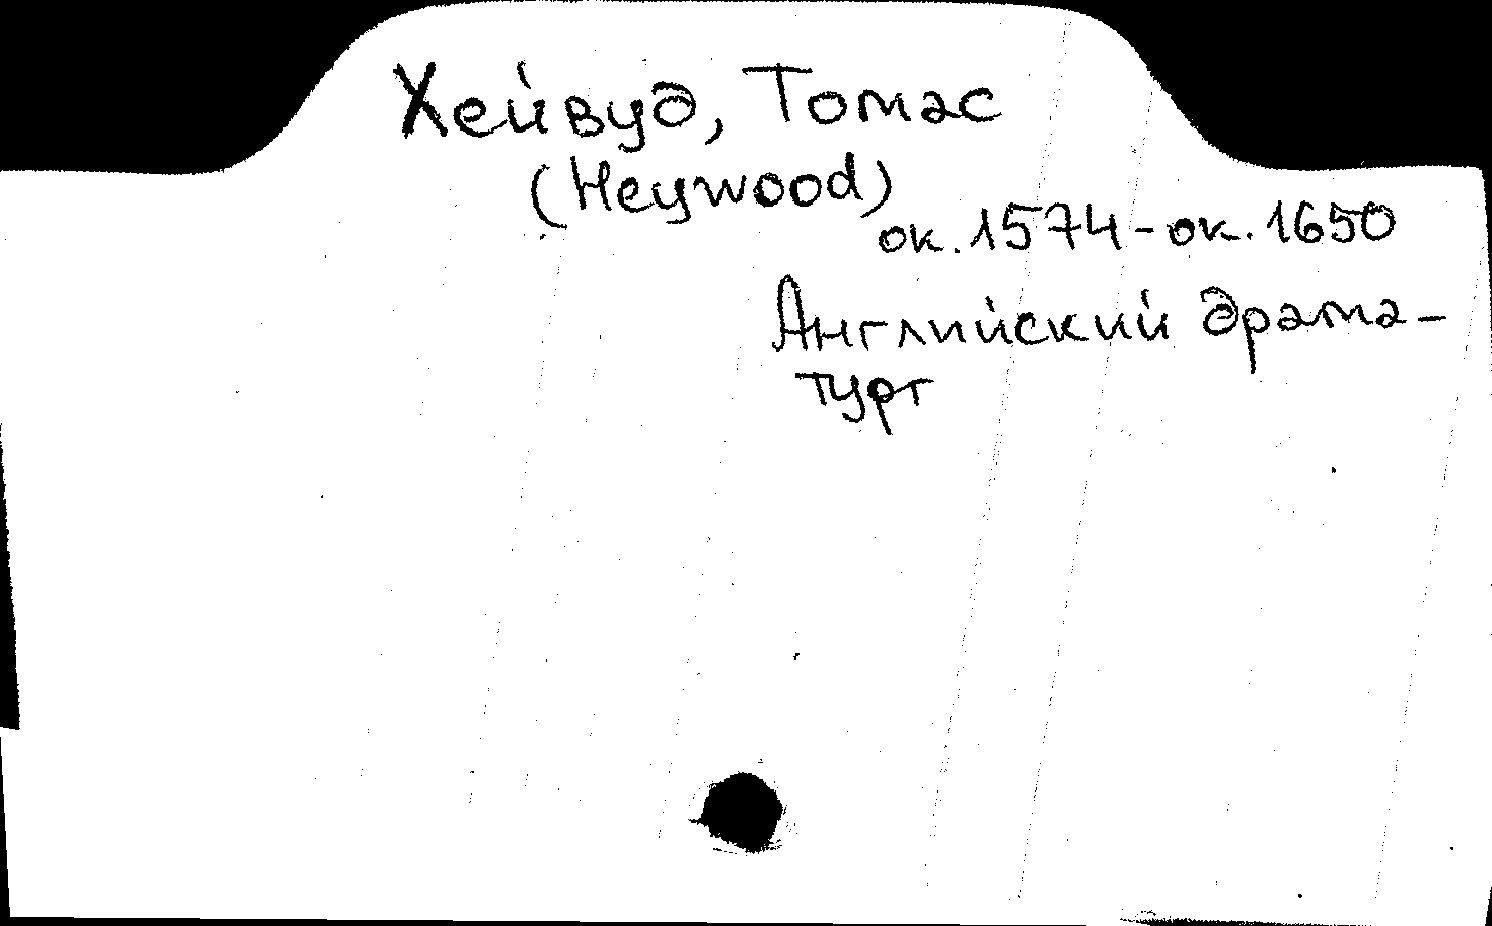 Хейвуд, Томас
(Heywood)
ок. 1574 - ок. 1650
Английский драма-
тург